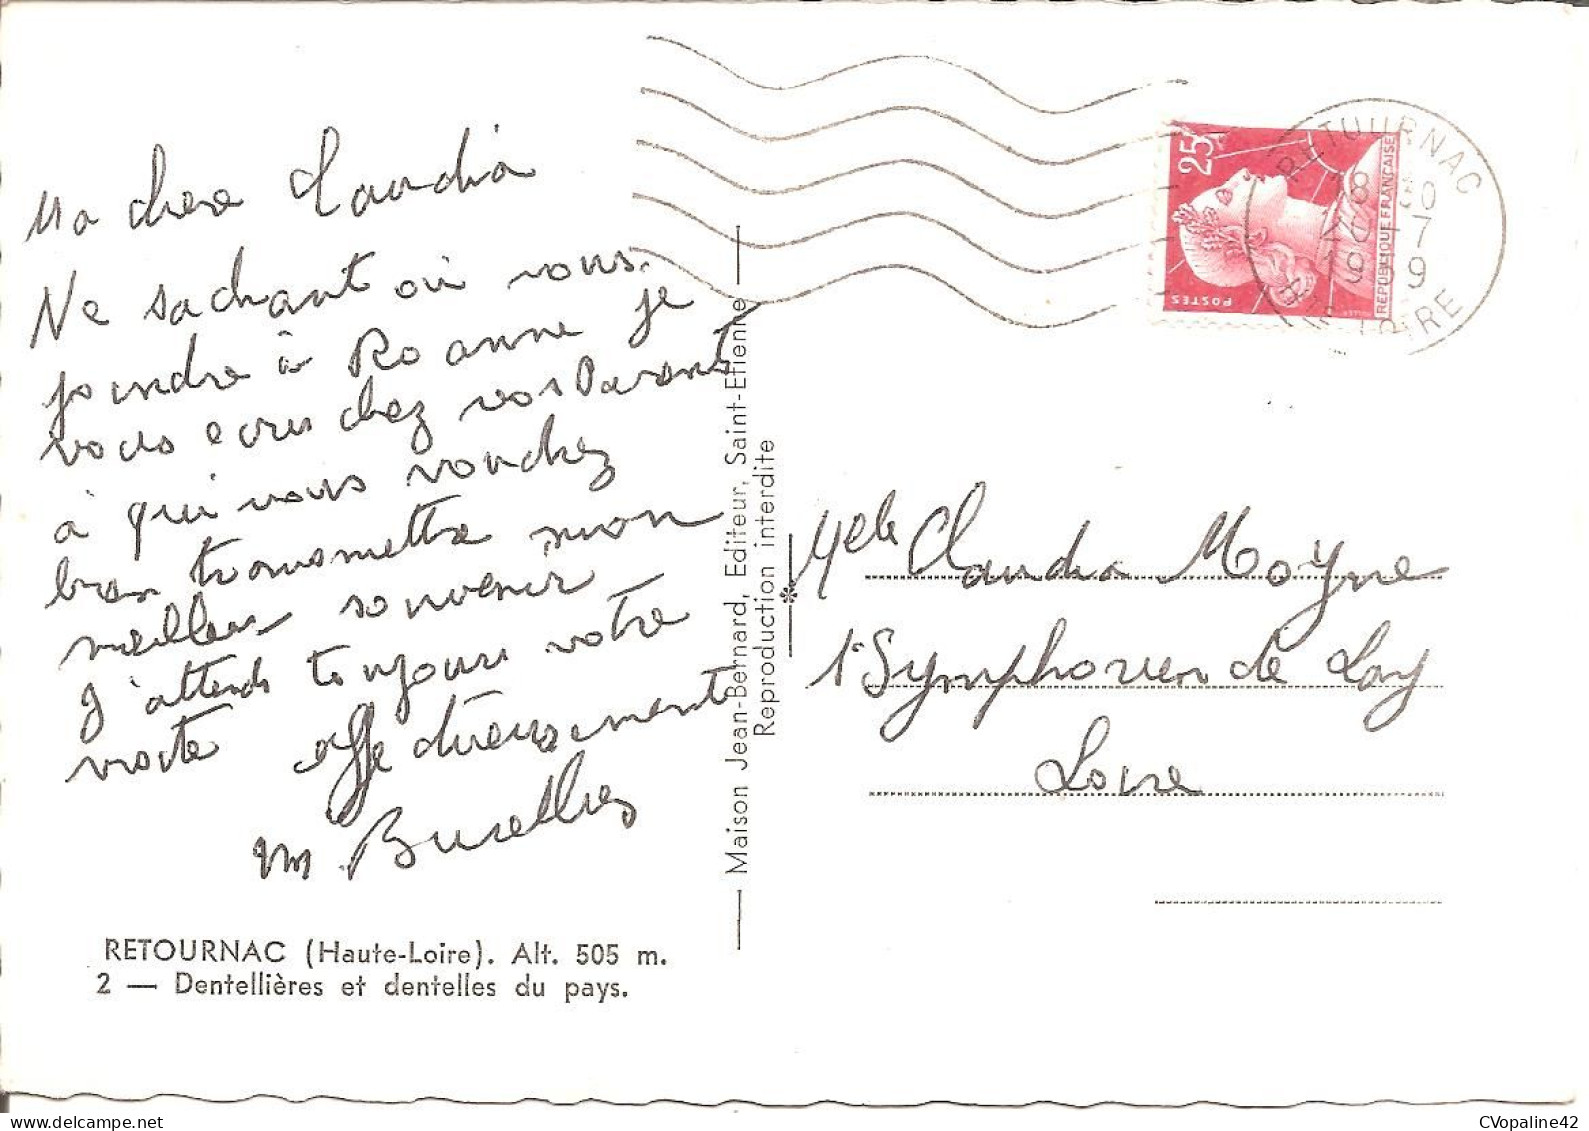 Ma chère Claudia
Ne sachant où vous
joindre à Roanne je
vous ecris chez vos Parents
à qui vous voudrez
bien transmettre mon
meilleur souvenir
J'attends toujours votre
visite affectueusement
m Buxelles
RETOURNAC (Haute-Loire). Alt. 505 m.
2 — Dentellières et dentelles du pays.
Maison Jean-Bernard, Editeur, Saint-Etienne
Reproduction interdite
25
POSTES
REPUBLIQUE FRANÇAISE
RETOURNAC
18 30
7
1959
HTE LOIRE
Melle Claudia Moyne
St Symphorien de Lay
Loire
CVopaline42